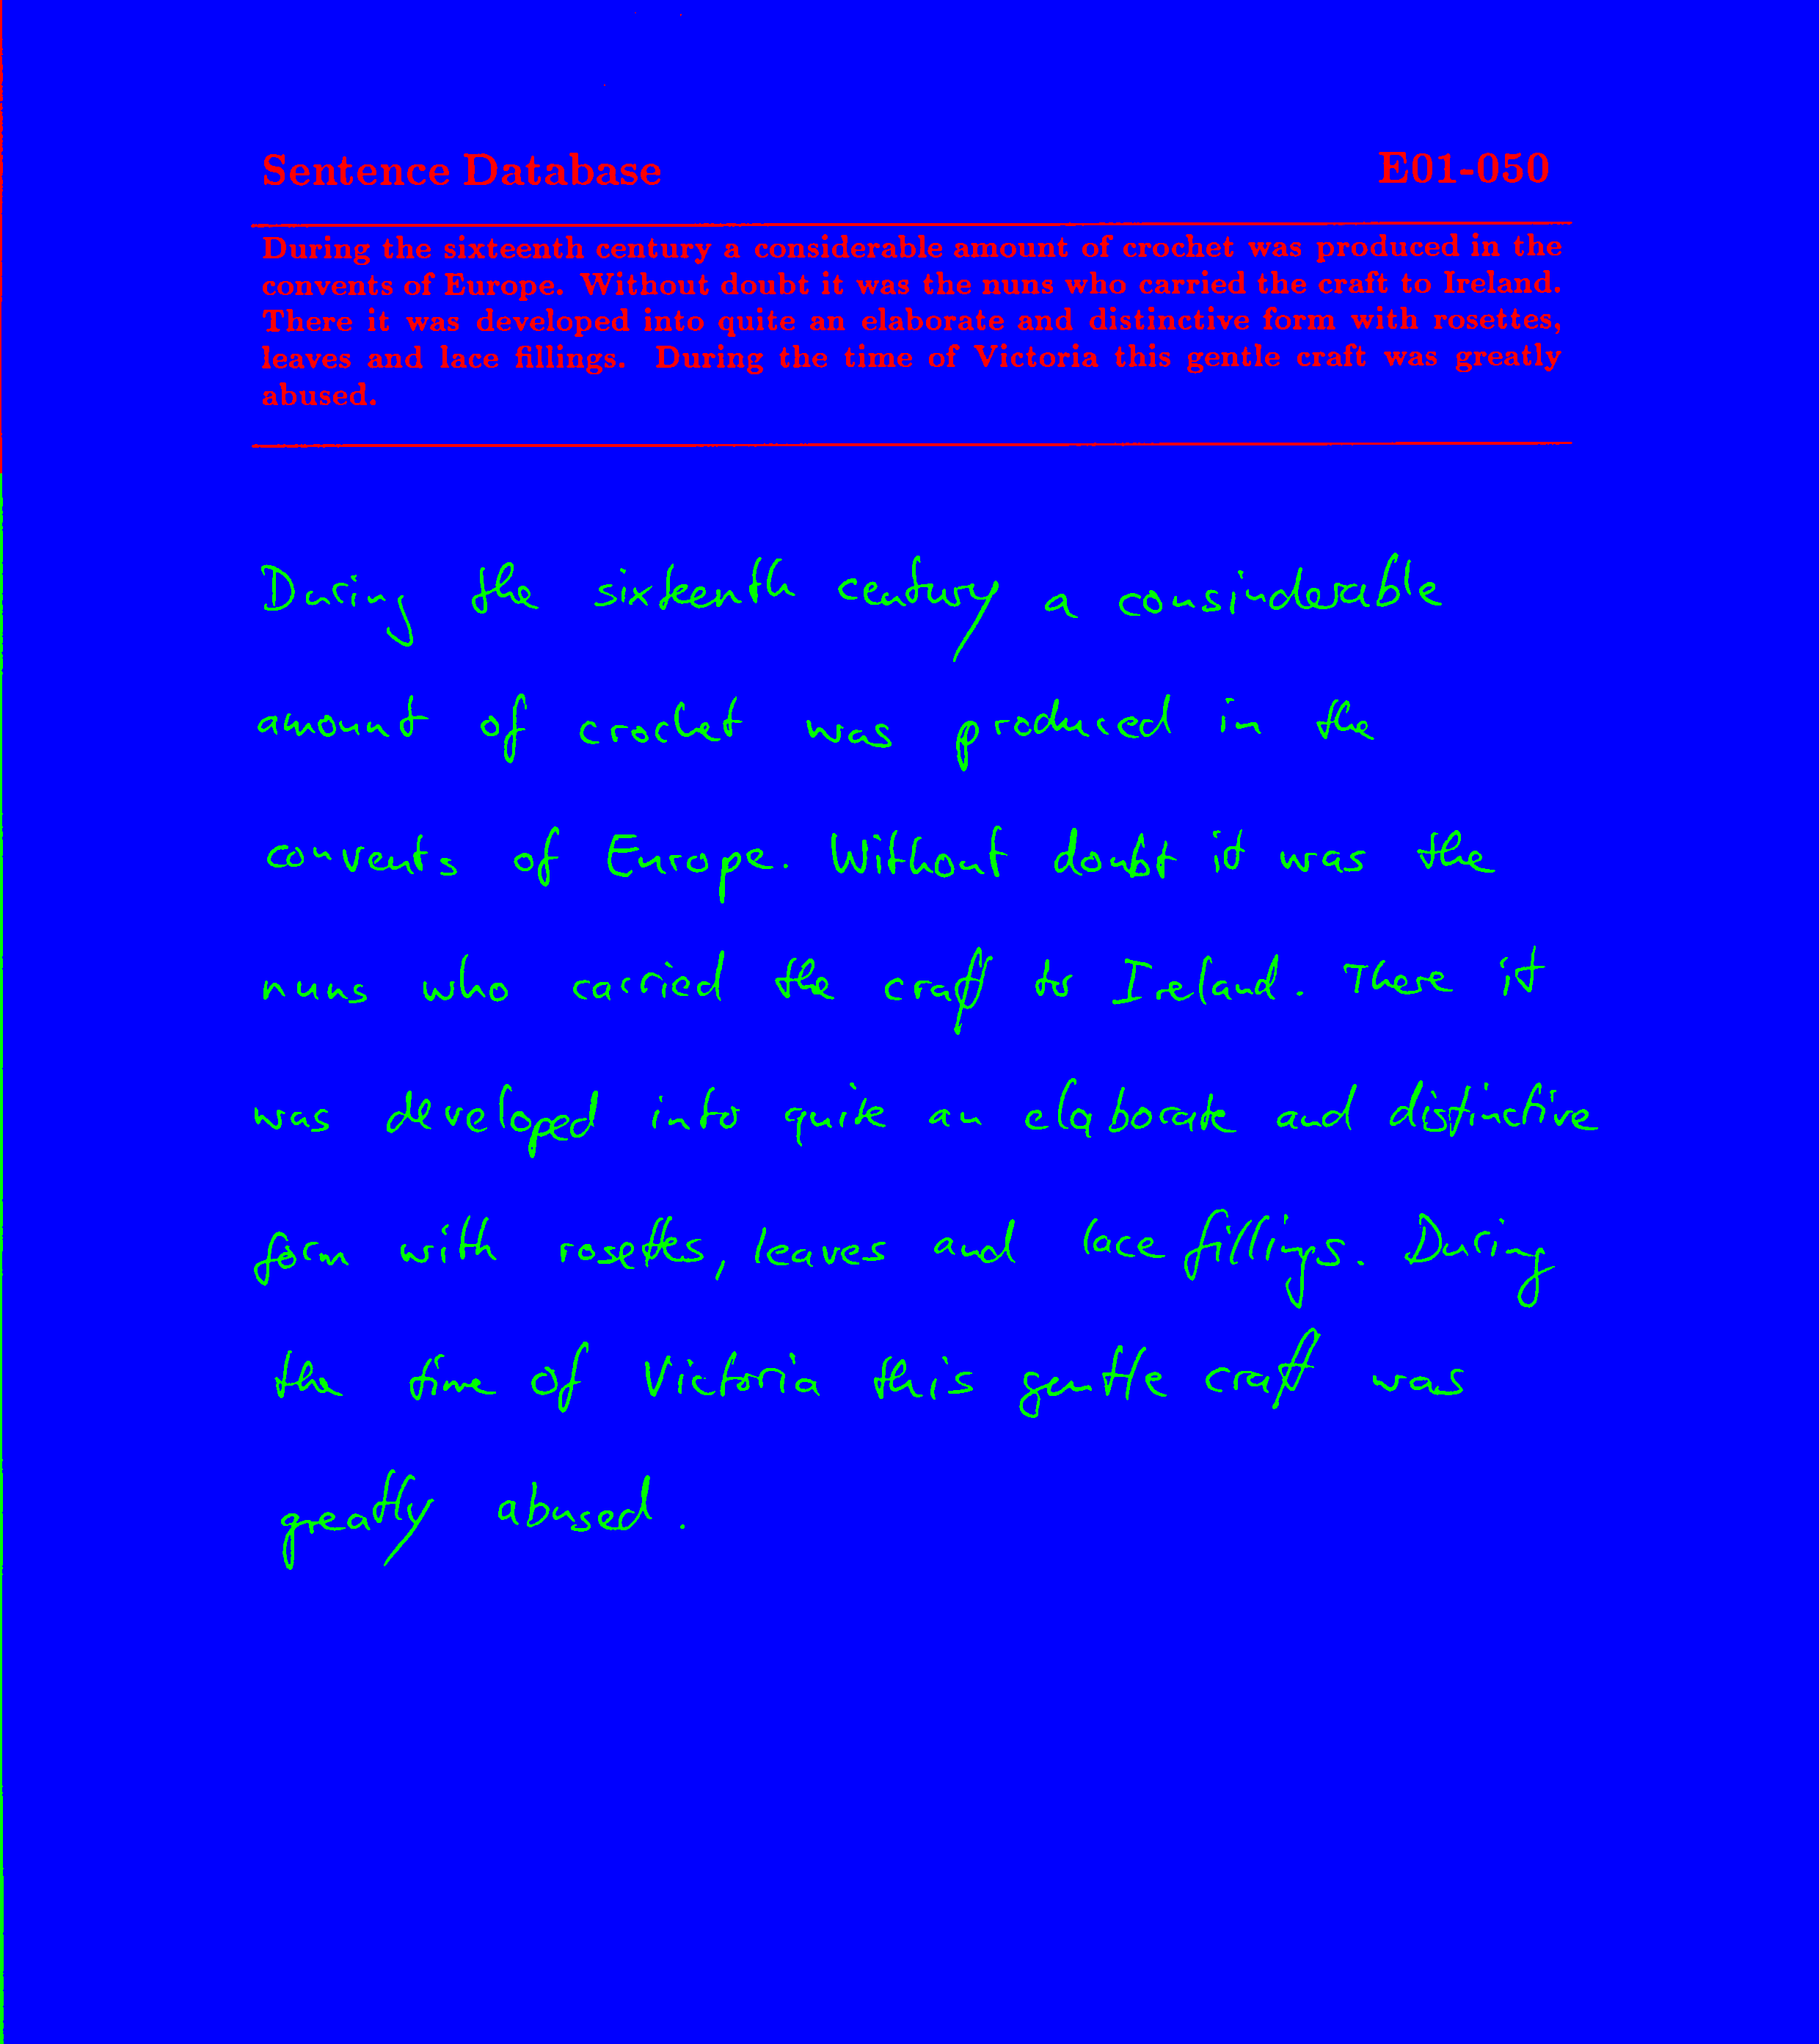 Sentence Database E01-050
During the sixteenth century a considerable amount of crochet was produced in the
convents of Europe. Without doubt it was the nuns who carried the craft to Ireland.
There it was developed into quite an elaborate and distinctive form with rosettes,
leaves and lace fillings. During the time of Victoria this gentle craft was greatly
abused.
During the sixteenth century a consinderable
amount of crochet was produced in the
convents of Europe. Without doubt it was the
nuns who carried the craft to Ireland. There it
was developed into quite an elaborate and distinctive
form with rosettes, leaves and lace fillings. During
the time of Victoria this gentle craft was
greatly abused.